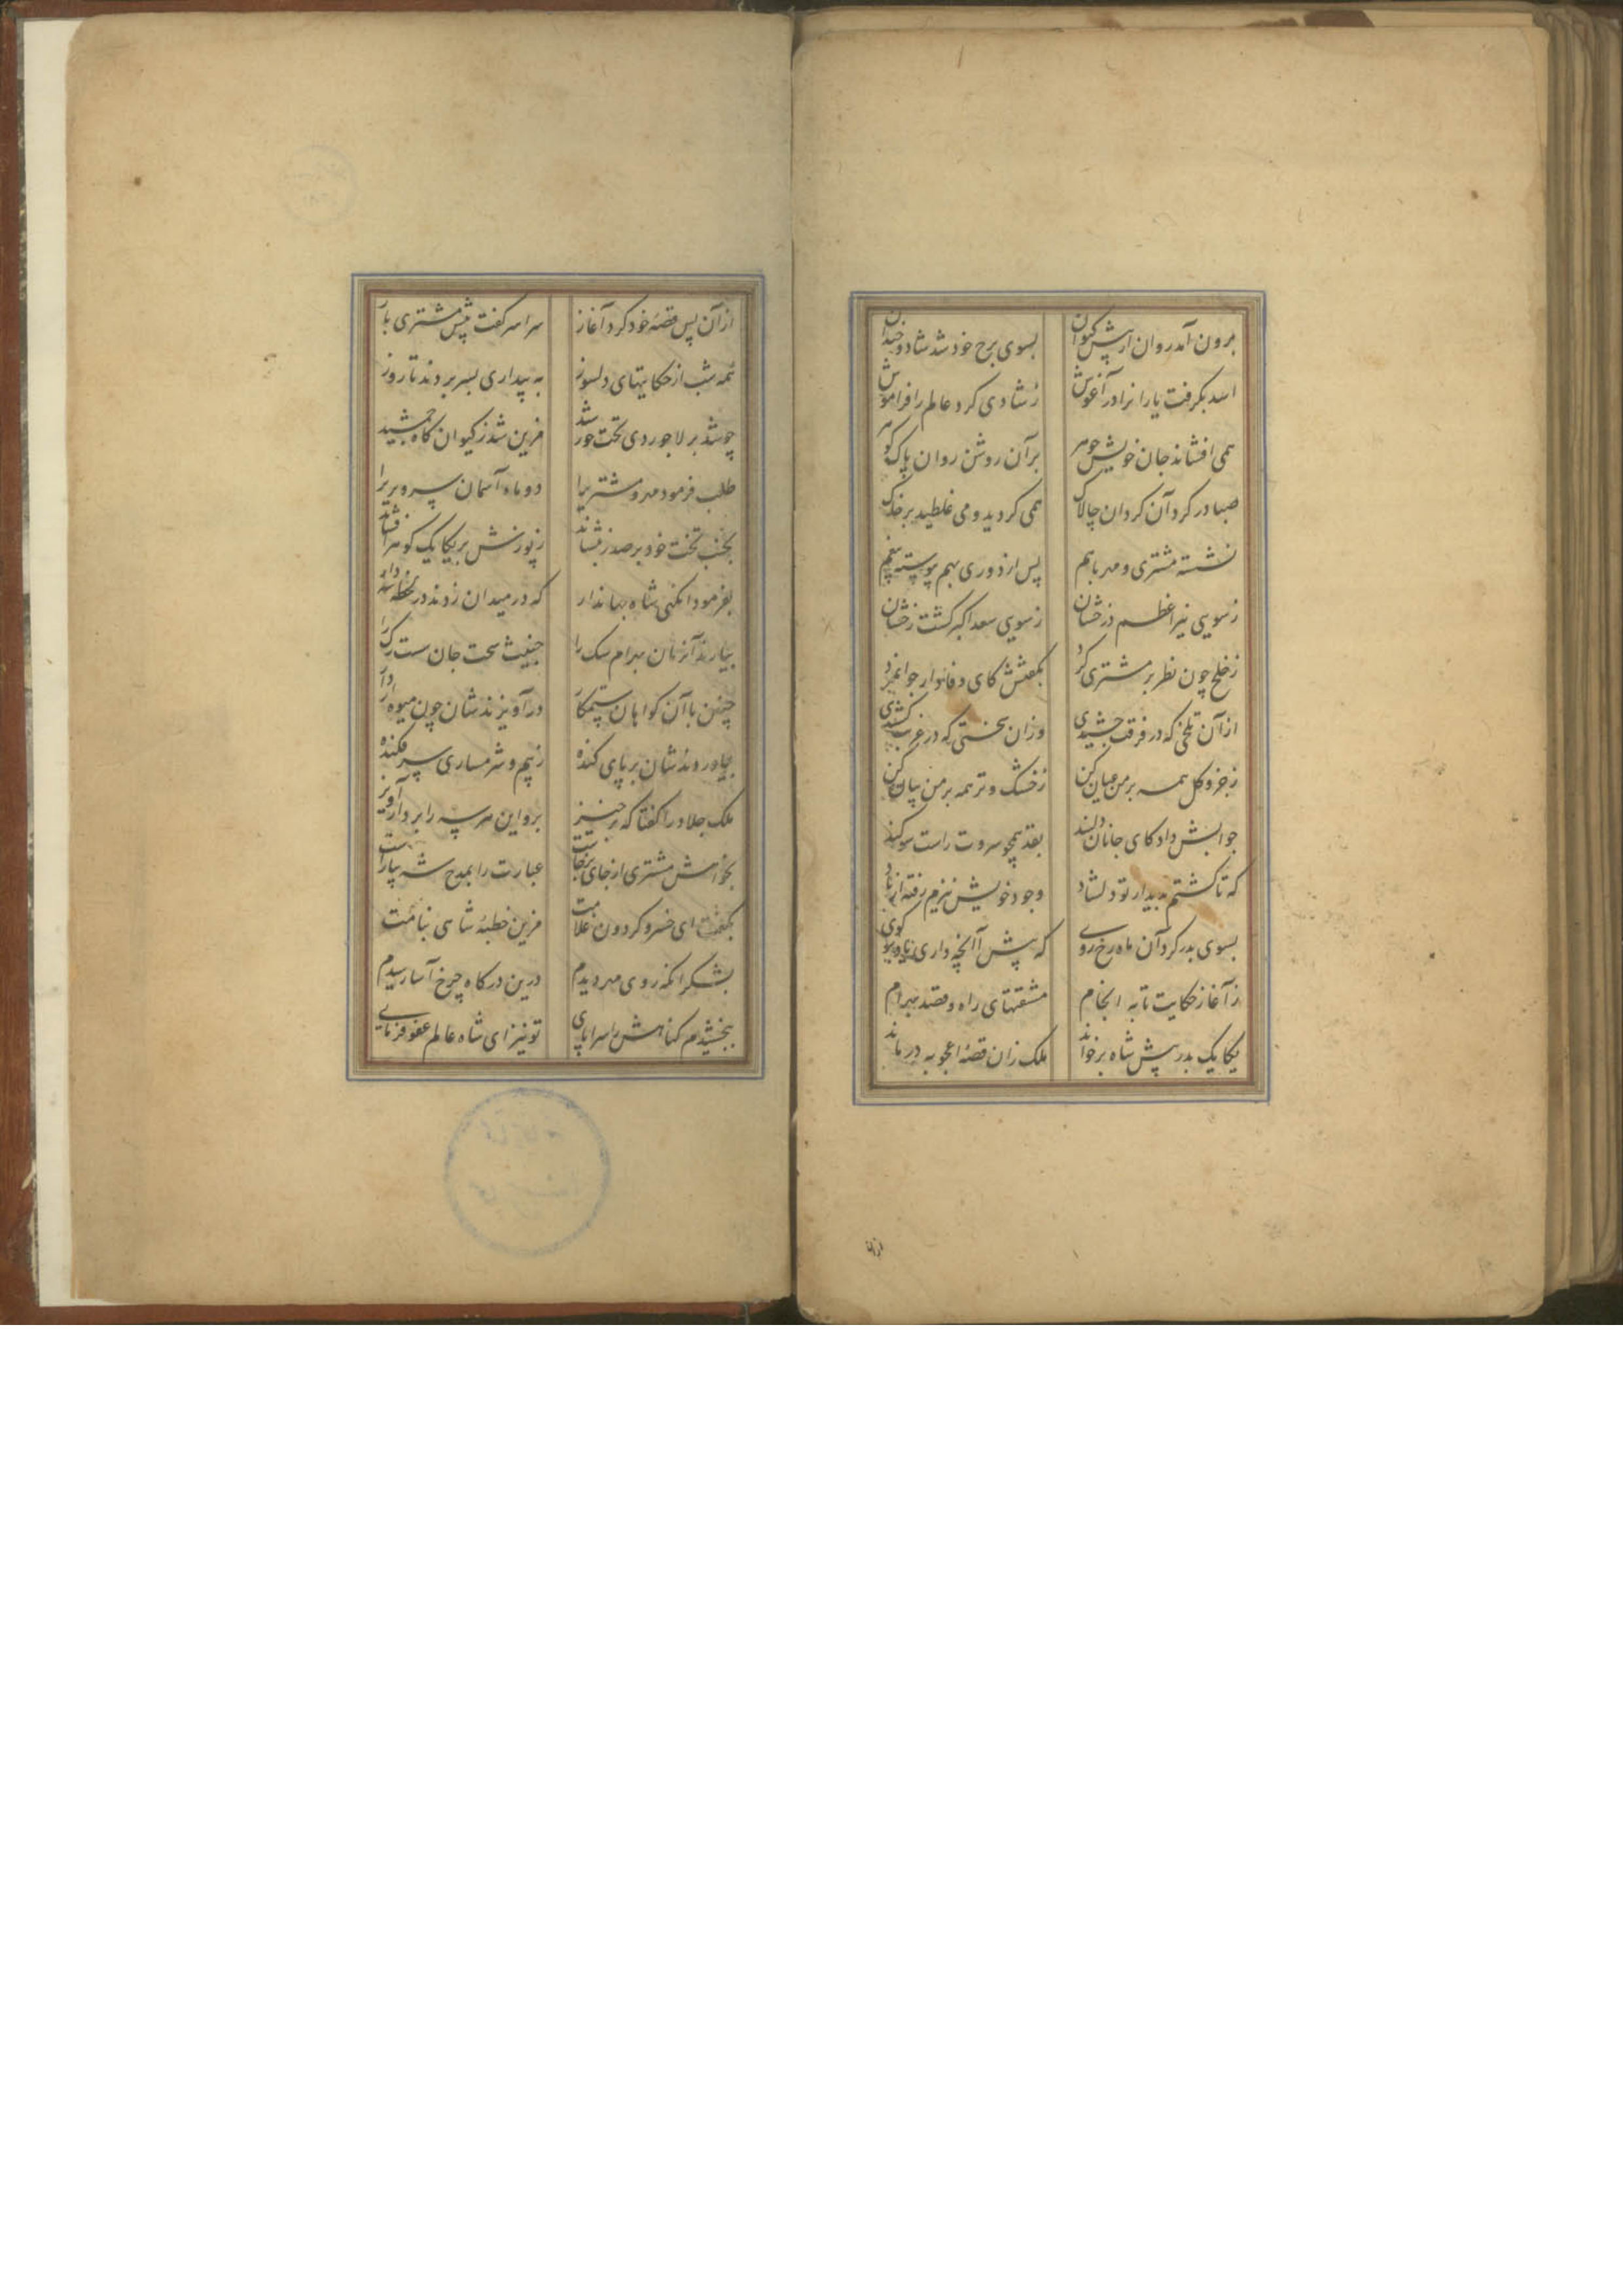 برون آمد روان از پیش کیوان بسوی برج خود شد شاد و خندان
اسد بگرفت یارانرا در آغوش ز شادی کرد عالم را فراموش
همی افشاند جان خویش جوهر بر آن روشن روان پاک گوهر
صبا در گرد آن گردان چالاک همی گردید و می غلطید بر خاک
نشسته مشتری و مهر باهم پس از دوری بهم پیوسته
ز سویی نیر اعظم درخشان ز سویی سعد اکبر گشت رخشان
ز خلخ چون نظر بر مشتری کرد بگفتش کای وفادار جوانمرد
از آن تلخی که در فرقت چشیدی وزان سختی که در غربت کشیدی
ز جزو و کل همه بر من عیان کن ز خشک و تر همه بر من بیان کن
جوابش داد کای جانان دلبند بقد همچو سروت راست سوگند
که تا گشتم بدیدار تو دلشاد وجود خویش نیزم رفته از یاد
بسوی بدر کرد آن ماه رخ روی که پیش آ آنچه داری یاد برگوی
از آغاز حکایت تا به انجام مشقتهای راه و قصد بهرام
یکایک بدر پیش شاه برخواند ملک زان قصه اعجوبه درماند
از آن
از آن پس قصه خود کرد آغاز سراسر گفت پیش مشتری باز
همه شب از حکایتهای دلسوز به بیداری بسر بردند تا روز
چو شد بر لاجوردی تخت خورشید مزین شد ز کیوان گاه جمشید
طلب فرمود مهر و مشتریرا دو ماه آسمان سروریرا
بجنب تخت خود بر صدر بنشاند ز پوزش بر یکایک گوهر افشاند
بفرمود آنگهی شاه جهاندار که در میدان زوند در لحظه دار
بیارند آنزمان بهرام سگ را خبیث سخت جان سست رگ را
چنین با آن گواهان ستمکار در آویزندشان چون میوه از دار
بیاوردندشان بر پای کنده ز بیم و شرمساری سر فکنده
ملک جلاد را گفتا که برخیز برو این هر سه را بر دار آویز
بخواهش مشتری از جای برخاست عبارت را بمدح شه بیاراست
بگفت ای خسرو گردون غلامت مزین خطبه شاهی بنامت
بشکر آنکه روی مهر دیدم درین درگاه چرخ آسا رسیدم
ببخشیدم گناهش را سراپای تو نیز ای شاه عالم عفو فرمای